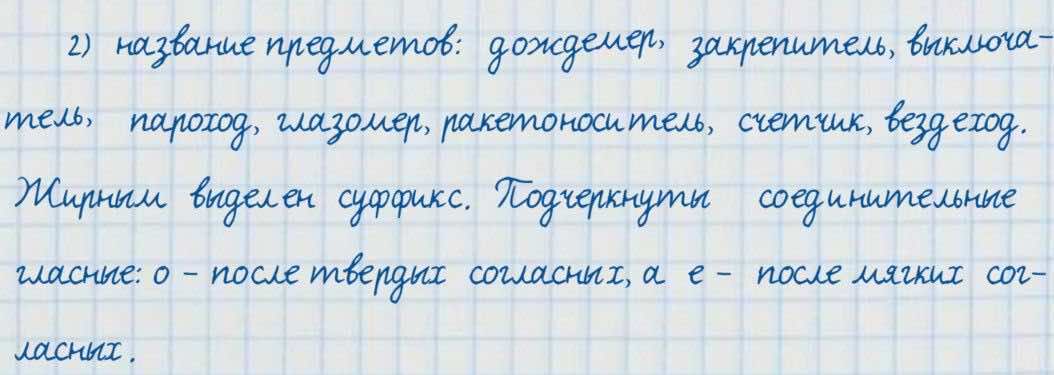 2) название предметов: дождемер, закрепитель, выключа-
тель, пароход, глазомер, ракетоноситель, счетчик, вездеход.
Жирным выделен суффикс. Подчеркнуты соединительные
гласные: о - после твердых согласных, а е - после мягких сог-
ласных.